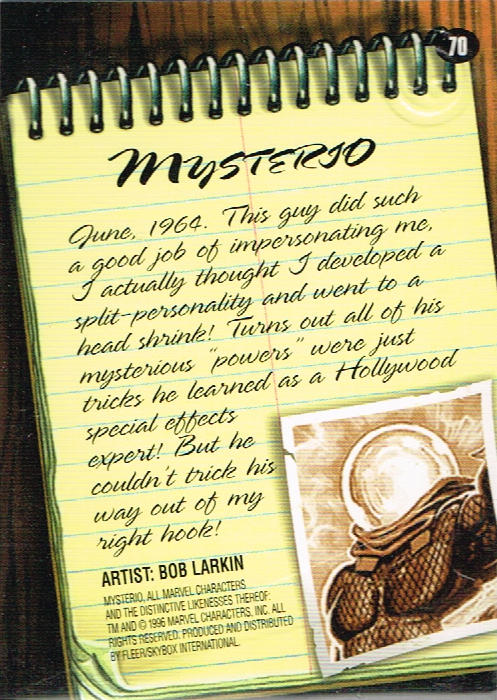 70
MYSTERIO
June, 1964. This guy did such
a good job of impersonating me,
I actually thought I developed a
split-personality and went to a
head shrink! Turns out all of his
mysterious "powers" were just
tricks he learned as a Hollywood
special effects
expert! But he
couldn't trick his
way out of my
right hook!
ARTIST: BOB LARKIN
MYSTERIO, ALL MARVEL CHARACTERS
AND THE DISTINCTIVE LIKENESSES THEREOF:
TM AND © 1996 MARVEL CHARACTERS, INC. ALL
RIGHTS RESERVED. PRODUCED AND DISTRIBUTED
BY FLEER/SKYBOX INTERNATIONAL.